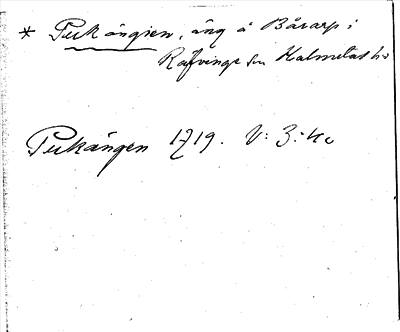 * Pukängien, äng å Bårarp i
Räfvinge sn Halmstad hd
Pukängen 1719. V: 3: 40